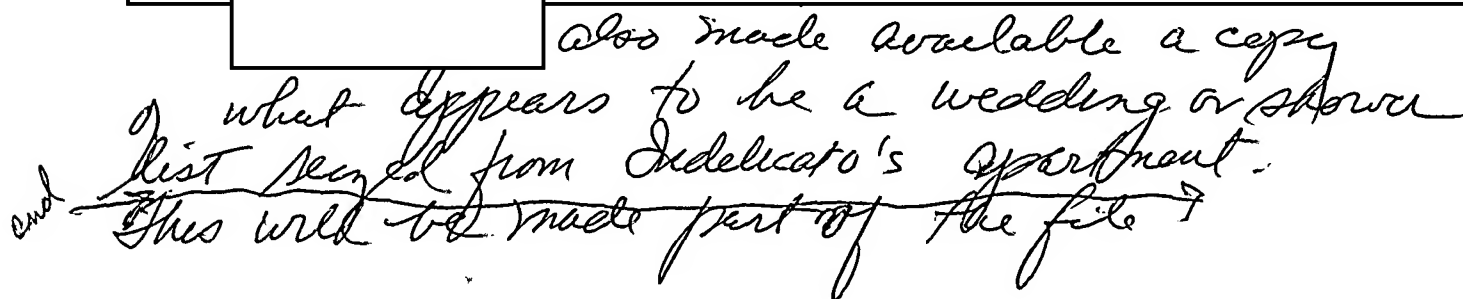 also made available a copy
of what appears to be a wedding or shower
list seized from Indelicato's apartment.
and This will be made part of the file